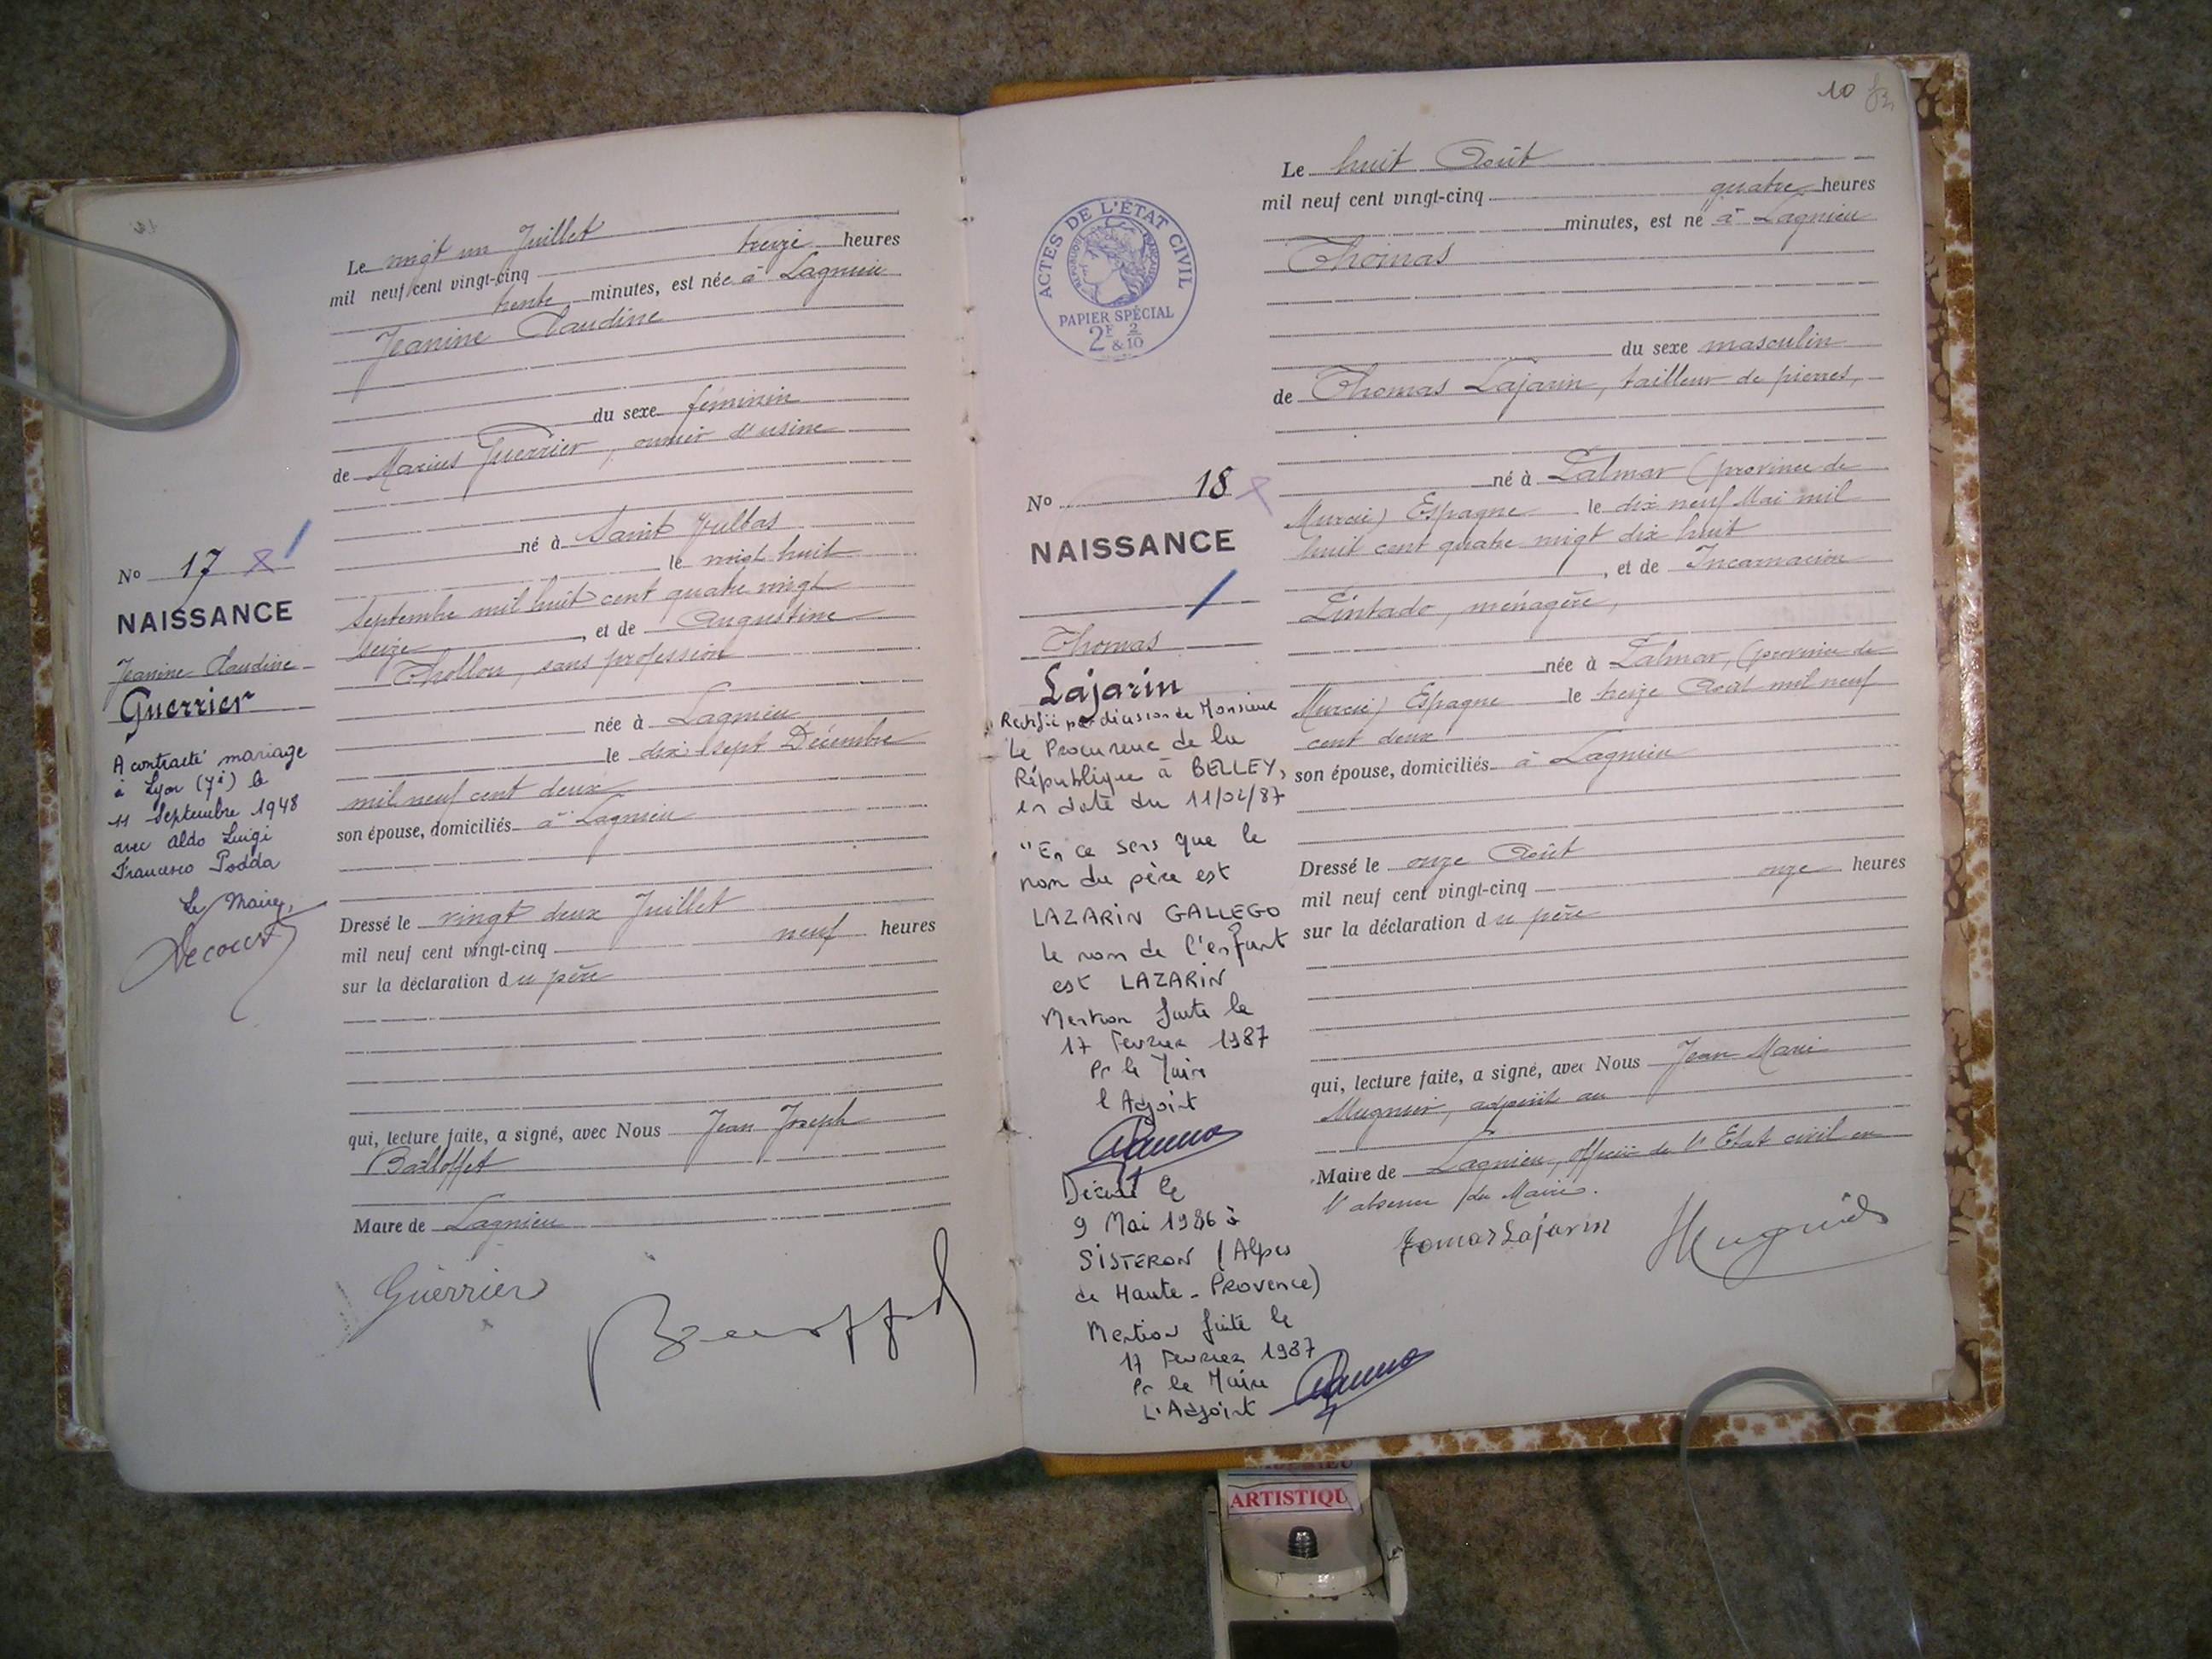 Le vingt un Juillet
mil neuf cent vingt-cinq treize heures
trente minutes, est née à Lagnieu
Jeanine Claudine
du sexe féminin
de Marius Guerrier, ouvrier d'usine
né à Saint Vulbas
le vingt huit
Septembre mil huit cent quatre vingt
seize, et de Augustine
Thollon, sans profession
née à Lagnieu
le dix-sept Décembre
mil neuf cent deux
son épouse, domiciliés à Lagnieu
Dressé le vingt deux Juillet
mil neuf cent vingt-cinq neuf heures
sur la déclaration du père
qui, lecture faite, a signé, avec Nous Jean Joseph
Balloffet
Maire de Lagnieu
Guerrier
No 17
NAISSANCE
Jeanine Claudine
Guerrier
A contracté mariage
à Lyon (7è) le
11 Septembre 1948
avec Aldo Luigi
Francesco Podda
Le Maire,
10
Le huit Août
mil neuf cent vingt-cinq quatre heures
minutes, est né à Lagnieu
Thomas
du sexe masculin
de Thomas Lajarin, tailleur de pierres,
né à Lalmar (province de
Murcie) Espagne le dix neuf Mai mil
huit cent quatre vingt dix huit
, et de Incarnacion
Lintado, ménagère,
née à Lalmar, (province de
Murcie) Espagne le treize Août mil neuf
cent deux
son épouse, domiciliés à Lagnieu
Dressé le onze Août
mil neuf cent vingt-cinq onze heures
sur la déclaration du père
qui, lecture faite, a signé, avec Nous Jean Marie
Mugnier, adjoint au
Maire de Lagnieu, officier de l'Etat civil en
l'absence du Maire.
Tomas Lajarin Mugnier
ACTES DE L'ÉTAT CIVIL
RÉPUBLIQUE FRANÇAISE
PAPIER SPÉCIAL
2F & 2/10
No 18
NAISSANCE
Thomas
Lajarin
Rectifié par décision de Monsieur
Le Procureur de la
République à BELLEY,
en date du 11/02/87
"En ce sens que le
nom du père est
LAZARIN GALLEGO
le nom de l'enfant
est LAZARIN
Mention faite le
17 Fevrier 1987
Pr le Maire
l'Adjoint
Décédé le
9 Mai 1986 à
SISTERON (Alpes
de Haute-Provence)
Mention faite le
17 Fevrier 1987
Pr le Maire
L'Adjoint
ARTISTIQU